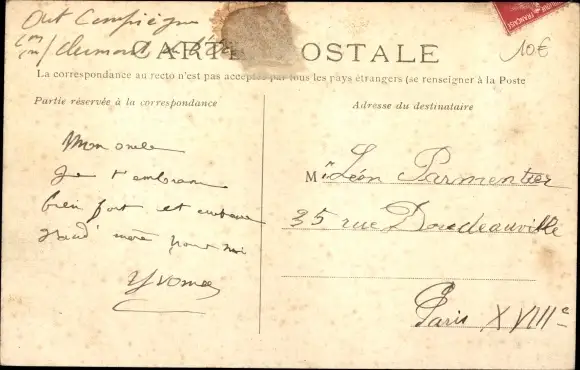 Compiègne
CARTE POSTALE
10€
La correspondance au recto n'est pas acceptée par tous les pays étrangers (se renseigner à la Poste
Partie réservée à la correspondance
Adresse du destinataire
Mon oncle
Je t'embrasse
bien fort et embrasse
grand' mère pour moi
Yvonne
Mr Léon Parmentier
35 rue Doudeauville
Paris XVIIIe